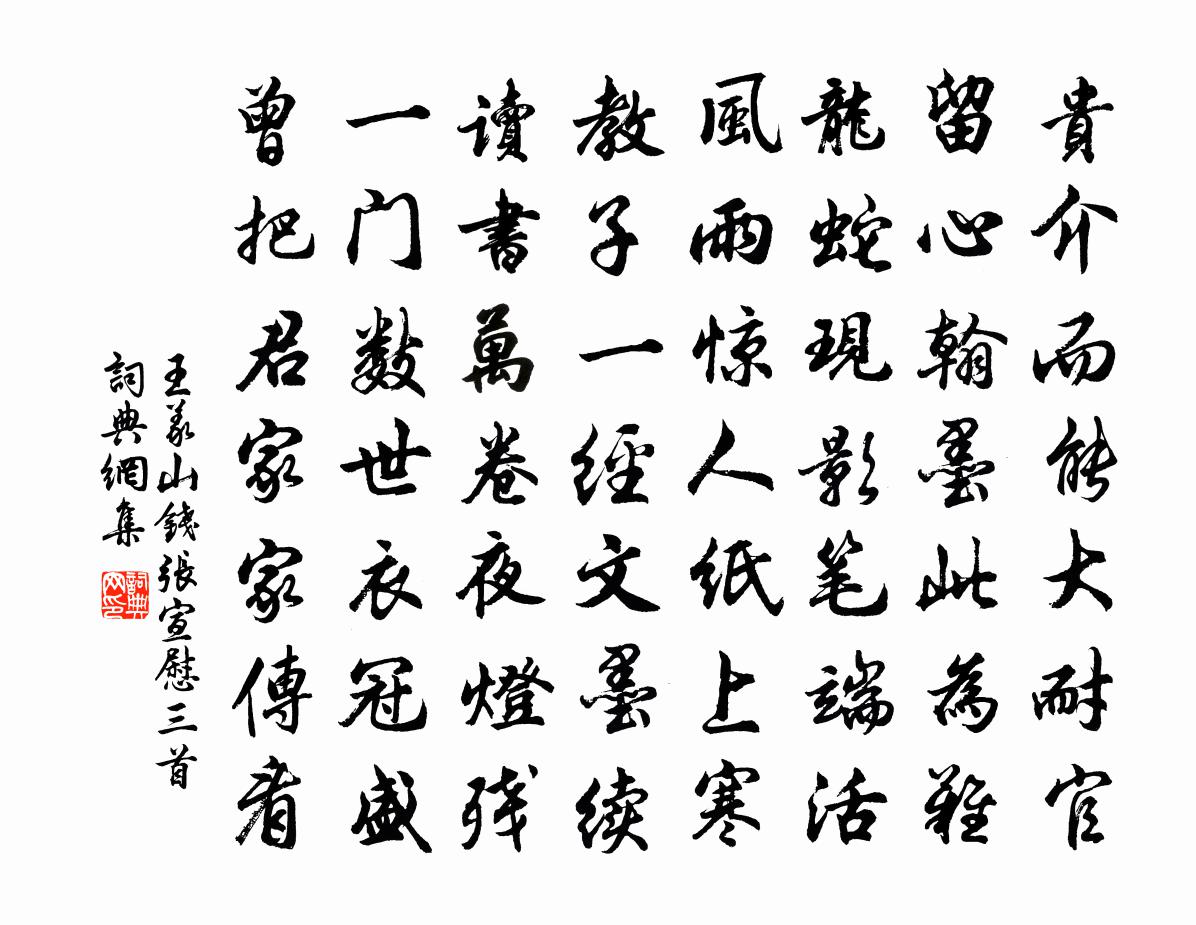 貴介而能大耐官
留心翰墨此為難
龍蛇現影笔端活
風雨惊人紙上寒
教子一經文墨续
讀書萬卷夜燈残
一门数世衣冠盛
曾把君家家傳看
王义山錢張宣慰三首
詞典網集
詞典网印